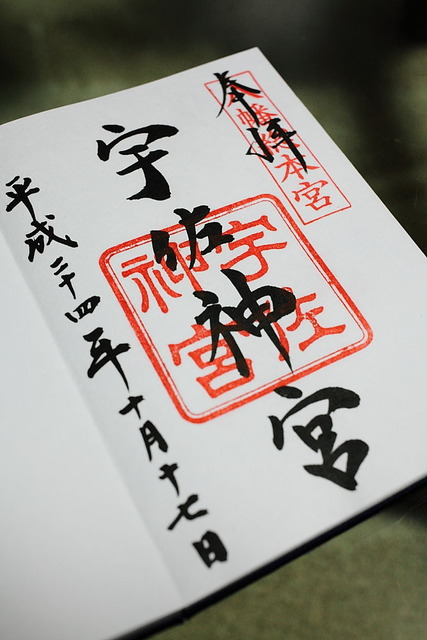 奉拝
八幡総本宮
宇佐神宮
宇佐
神宮
平成二十四年十月十七日